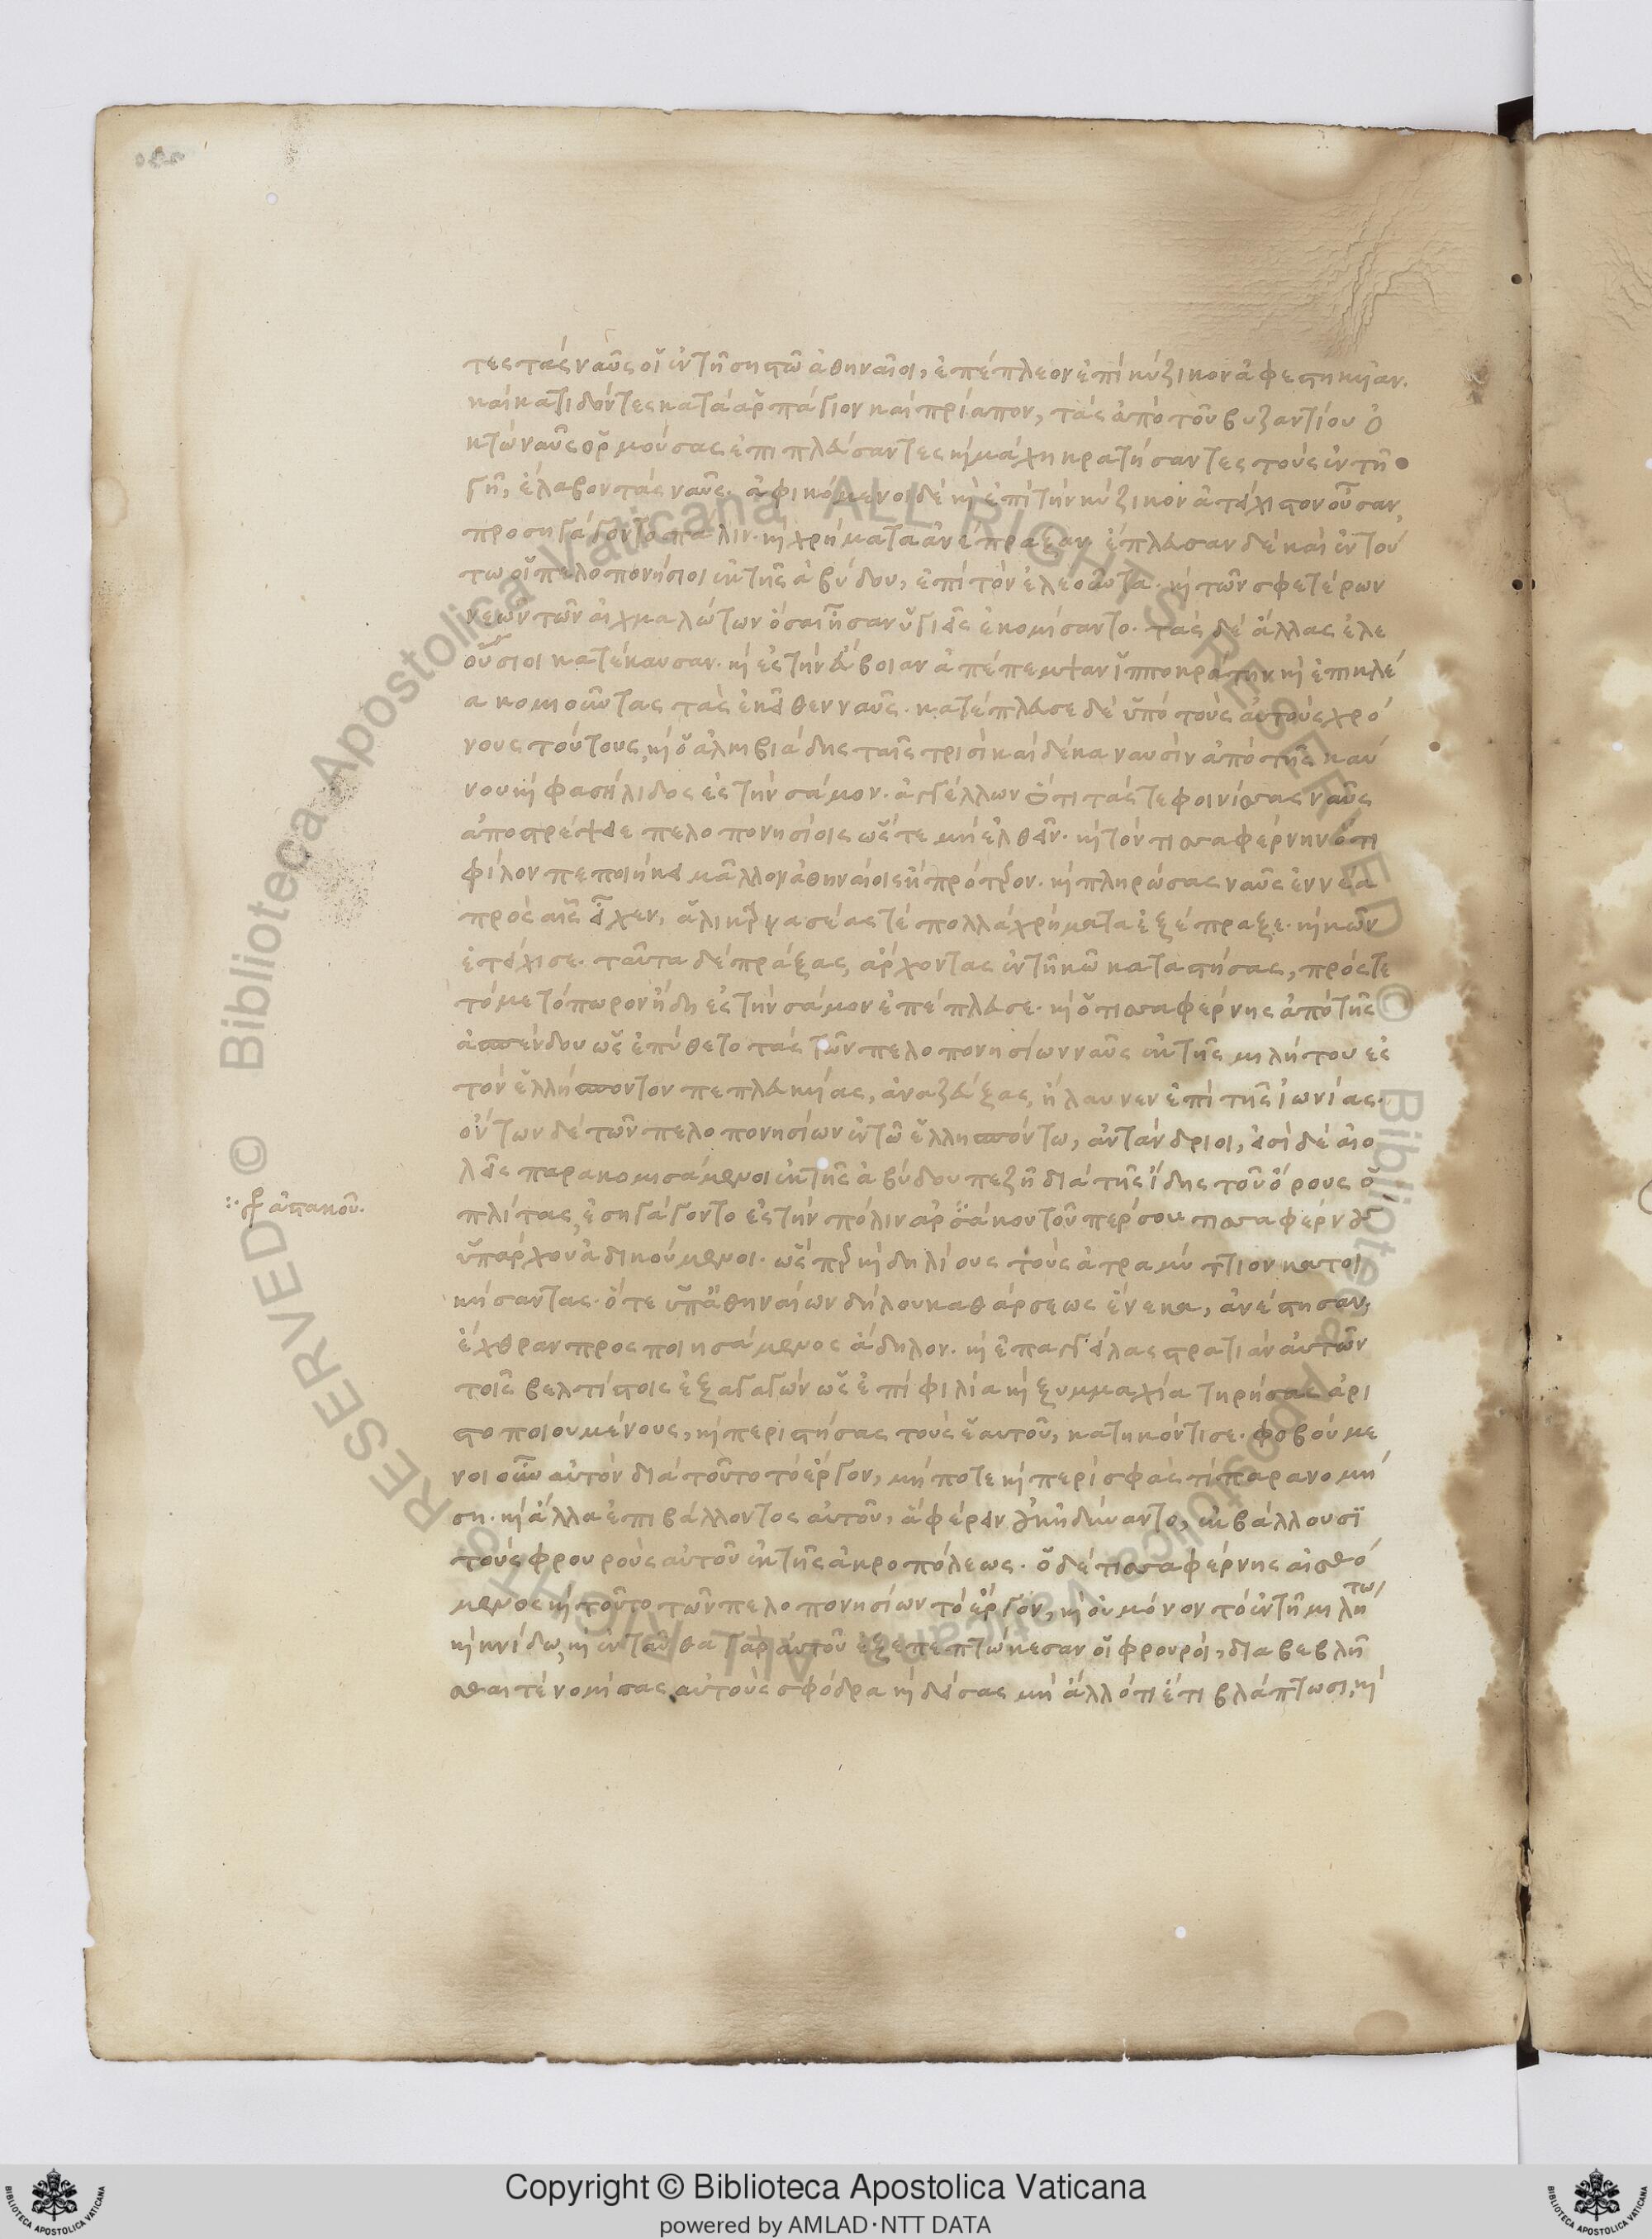 τες τὰς ναῦς οἱ ἐν τῆ σηστῶ ἀθηναῖοι, ἐπέπλεον ἐπὶ κύζικον ἀφεστηκυῖαν.
καὶ κατιδόντες κατὰ ἁρπάγιον καὶ πρίαπον, τὰς ἀπὸ τοῦ βυζαντίου ὀ
κτὼ ναῦς ὁρμούσας ἐπιπλεύσαντες κỳ μάχη κρατήσαντες τοὺς ἐν τῆ
γῆ, ἔλαβον τὰς ναῦς. ἀφικόμενοι δὲ κỳ ἐπὶ τὴν κύζικον ἀτείχιστον οὖσαν,
προσηγάγοντο πάλιν. κỳ χρήματα ἀνέπραξαν. ἔπλευσαν δὲ καὶ ἐν τού
τω οἱ πελοπονήσιοι ἐκ τῆς ἀβύδου, ἐπὶ τὸν ἐλεοῦντα. κỳ τῶν σφετέρων
νεῶν τῶν αἰχμαλώτων ὅσαι ἦσαν ὑγιεῖς ἐκομίσαντο. τὰς δὲ ἄλλας ἐλε
ούσιοι κατέκαυσαν. κỳ ἐς τὴν εὔβοιαν ἀπέπεμψαν ἱπποκράτην κỳ ἐπικλέ
α κομιοῦντας τὰς ἐκεῖθεν ναῦς. κατέπλευσε δὲ ὑπὸ τοὺς αὐτοὺς χρό
νους τούτους, κỳ ὁ ἀλκιβιάδης ταῖς τρισὶ καὶ δέκα ναυσὶν ἀπὸ τῆς καύ
νου κỳ φασήλιδος ἐς τὴν σάμον. ἀγγέλλων ὅτι τάς τε φοινίσσας ναῦς
ἀποστρέψειε πελοπονησίοις ὥστε μὴ ἐλθεῖν. κỳ τὸν τισσαφέρνην ὅτι
φίλον πεποιήκει μᾶλλον ἀθηναίοις ἢ πρότερον. κỳ πληρώσας ναῦς ἐννέα
πρὸς αἷς εἶχεν, ἁλικαρνασέας τὲ πολλὰ χρήματα ἐξέπραξε. κỳ κῶν
ἐτείχισε. ταῦτα δὲ πράξας, ἄρχοντας ἐν τῆ κῶ καταστήσας, πρός τε
τὸ μετόπωρον ἤδη ἐς τὴν σάμον ἐπέπλευσε. κỳ ὁ τισσαφέρνης ἀπὸ τῆς
ἀσπένδου ὡς ἐπύθετο τὰς τῶν πελοπονησίων ναῦς ἐκ τῆς μιλήτου ἐς
τὸν ἑλλήσποντον πεπλευκυίας, ἀναζεύξας, ἤλαυνεν ἐπὶ τῆς ἰωνίας.
ὄντων δὲ τῶν πελοπονησίων ἐν τῶ ἑλλησπόντω, ἀντάνδριοι, εἰσὶ δὲ αἰο
λεῖς παρακομισάμενοι ἐκ τῆς ἀβύδου πεζῆ διὰ τῆς ἴδης τοῦ ὄρους ὁ
πλίτας, ἐσηγάγοντο ἐς τὴν πόλιν ἀρσάκου τοῦ πέρσου τισσαφέρνους
ὑπάρχου ἀδικούμενοι. ὥσπερ κỳ δηλίους τοὺς ἀτραμύττιον κατοι
κήσαντας. ὅτε ὑπ' ἀθηναίων δήλου καθάρσεως ἕνεκα, ἀνέστησαν,
ἔχθραν προσποιησάμενος ἄδηλον. κỳ ἐπαγγείλας στρατιὰν αὐτῶν
τοῖς βελτίστοις ἐξαγαγὼν ὡς ἐπὶ φιλία κỳ ξυμμαχία τηρήσας ἀρι
στοποιουμένους, κỳ περιστήσας τοὺς ἑαυτοῦ, κατηκόντισε. φοβούμε
νοι οὖν αὐτὸν διὰ τοῦτο τὸ ἔργον, μήποτε κỳ περὶ σφᾶς τὶ παρανομή
ση. κỳ ἄλλα ἐπιβάλλοντος αὐτοῦ, ἃ φέρειν οὐκ ἐδύναντο, ἐκβάλλουσϊ
τοὺς φρουροὺς αὐτοῦ ἐκ τῆς ἀκροπόλεως. ὁ δὲ τισσαφέρνης αἰσθό
μενος κỳ τοῦτο τῶν πελοπονησίων τὸ ἔργον, κỳ οὐ μόνον τὸ ἐν τῆ μιλήτω
κỳ κνίδω, κỳ ἐνταῦθα γὰρ αὐτοῦ ἐξεπεπτώκεσαν οἱ φρουροὶ, διαβεβλῆ
σθαι τὲ νομίσας αὐτοὺς σφόδρα κỳ δείσας μὴ ἄλλό τι ἔτι βλάπτωσι, κỳ
ἀστακοῦ.
Copyright © Biblioteca Apostolica Vaticana
powered by AMLAD·NTT DATA